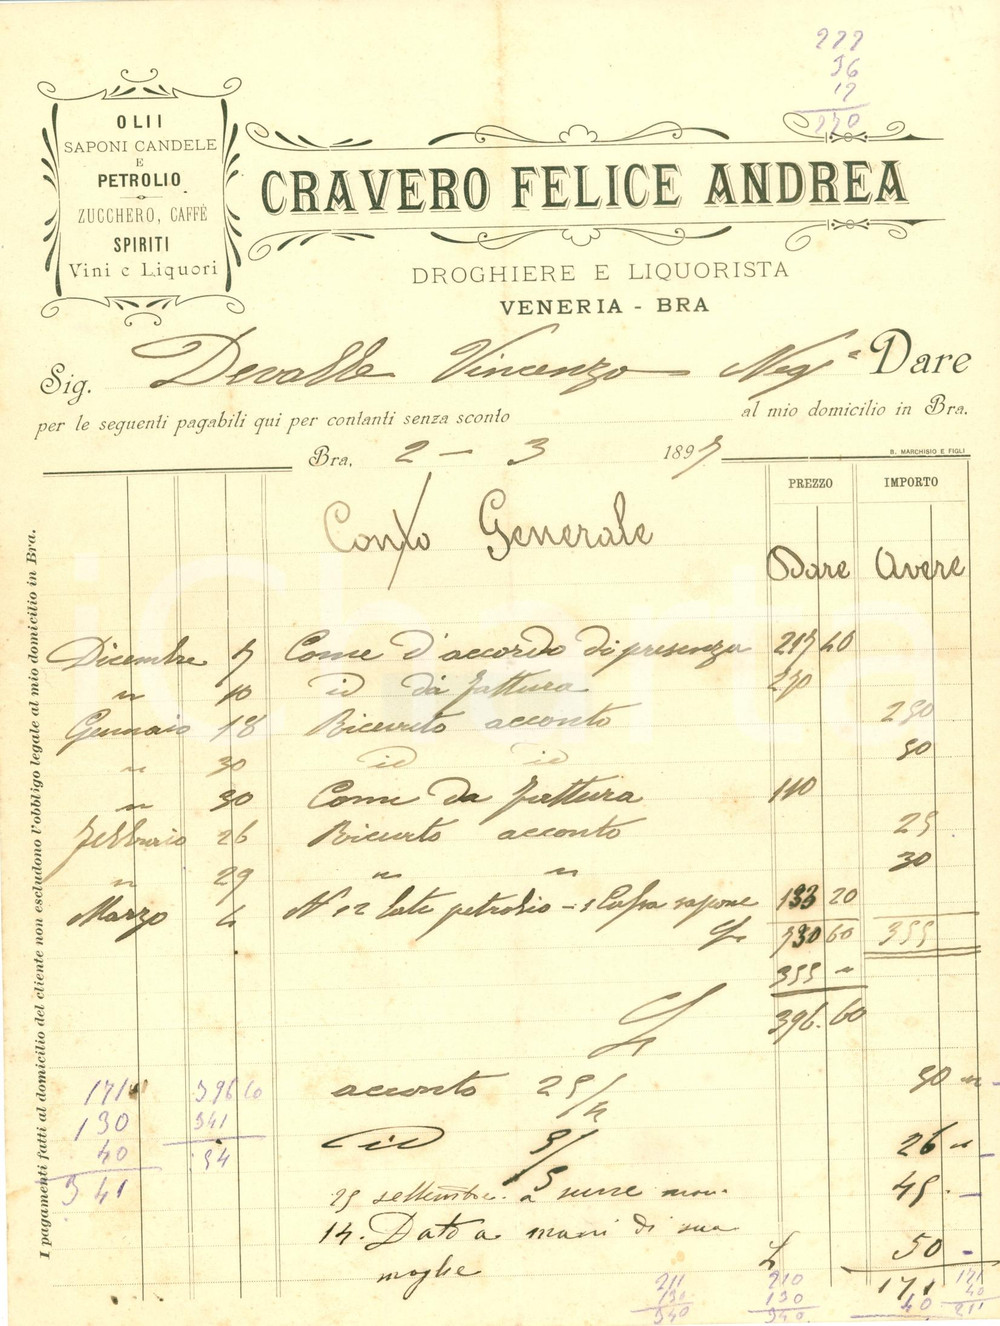 222
36
12
270
OLII
SAPONI CANDELE
E
PETROLIO
ZUCCHERO, CAFFÈ
SPIRITI
Vini e Liquori
CRAVERO FELICE ANDREA
DROGHIERE E LIQUORISTA
VENERIA - BRA
Sig. Devalle Vincenzo Neg.e Dare
per le seguenti pagabili qui per contanti senza sconto al mio domicilio in Bra.
Bra, 2 - 3 1897
B. MARCHISIO E FIGLI
PREZZO IMPORTO
Conto Generale
Dare Avere
Dicembre 7 Come d'accordo di presenza 217 40
" 10 id da fattura 270
Gennaio 18 Ricevuto acconto 250
" 30 id id 50
" 30 Come da fattura 110
Febbraio 26 Ricevuto acconto 25
" 29 " " 30
Marzo N 12 late petrolio - 1 Cassa sapone 133 20
L. 730 60 355
355 "
L 396.60
acconto 25/4 50 "
id 5/5 26 "
25 settembre a 45 -
14. Dato a mani di sua
moglie L 50 -
171
I pagamenti fatti al domicilio del cliente non escludono l'obbligo legale al mio domicilio in Bra.
171
130
40
341
396 60
341
54
211
130
340
210
130
340
40
171
40
211